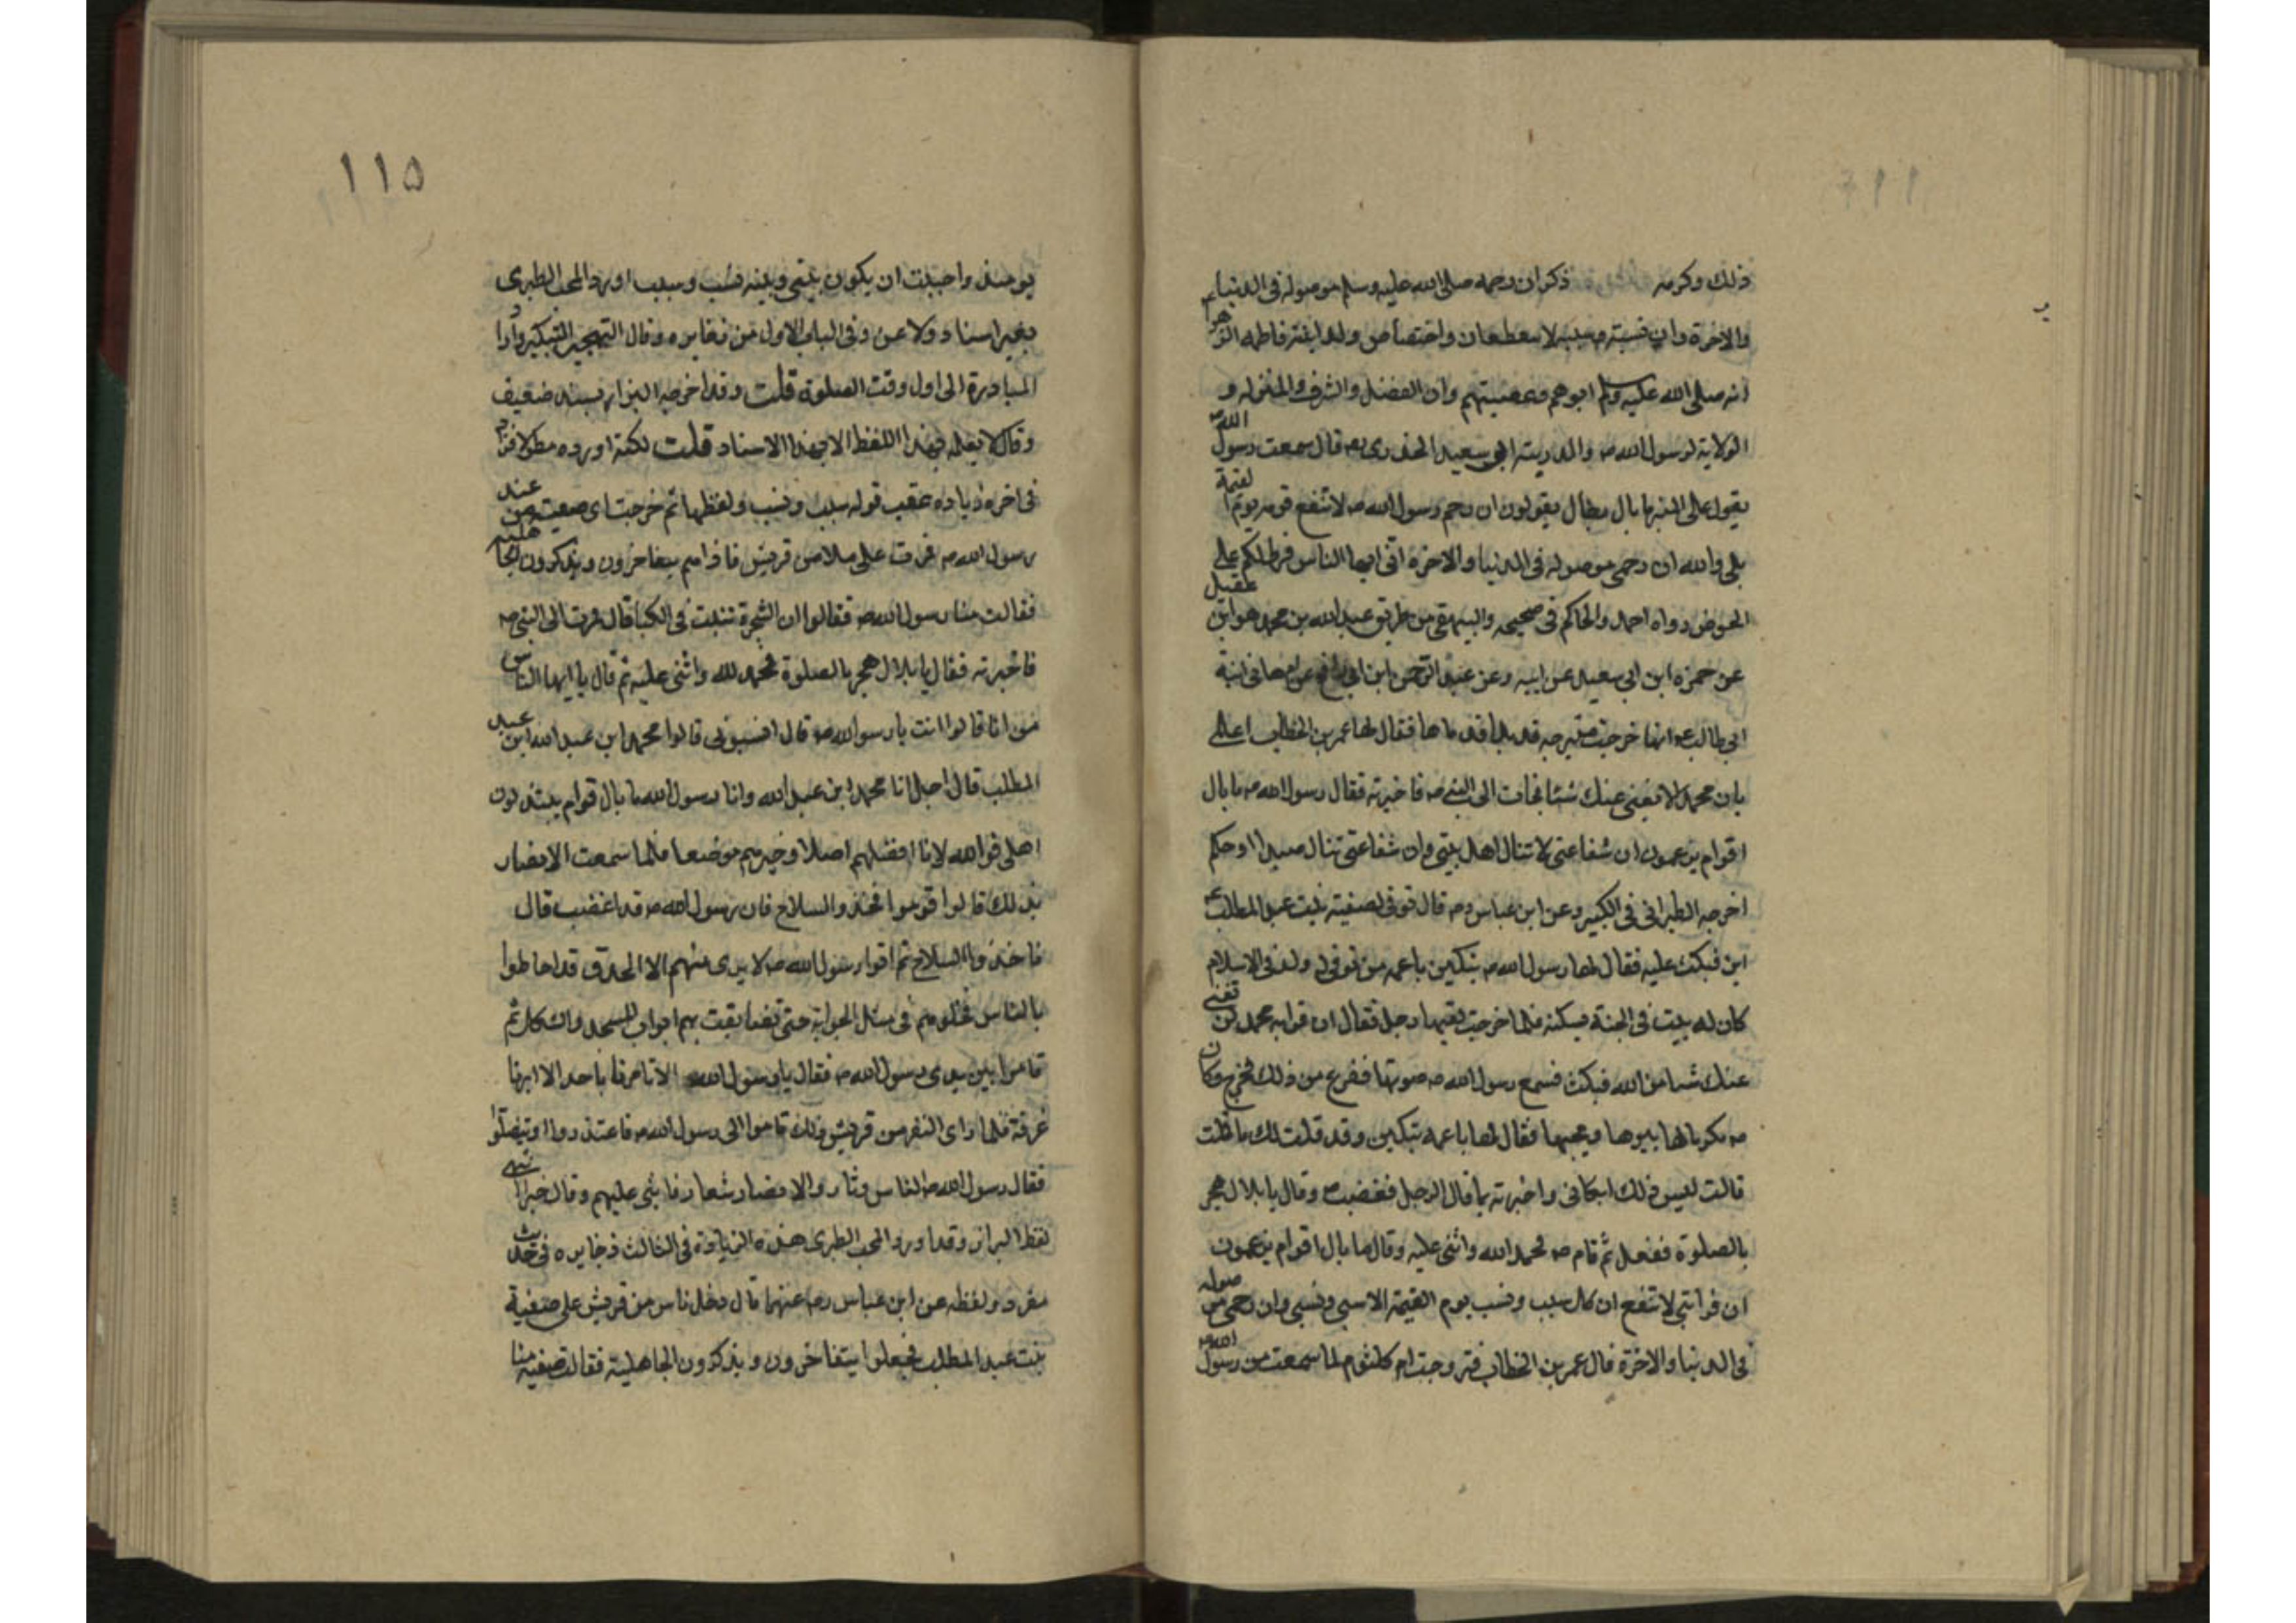 ذلك وكرمه ذكر ان رحمه صلى الله عليه وسلم موصوله فى الدنيا
والاخرة وان نسبته وسببه لا ينقطعان واختصاص ولد ابنته فاطمه الزهرا
انه صلى الله عليه وسلم ابوهم وعصبيتهم وان الفضل والشرف والمنزله و
الولاية لرسول الله صه والذريته ابى سعيد الخدرى رضه قال سمعت رسول الله صه
يقول على المنبر ما بال رجال يقولون ان رحم رسول الله صه لا تنفع قومه يوم القيمة
بلى والله ان رحمى موصوله فى الدنيا والاخرة انى ايها الناس فرط لكم على
الحوض رواه احمد والحاكم فى صحيحه والبيهقى من طريق عبد الله بن محمد هو ابن عقيل
عن حمزه ابن ابى سعيد عن ابيه وعن عبد الرحمن ابن ابى رافع عن ام هانى ابنة
ابى طالب عم انها خرجت متبرجه قد بدا قدماها فقال لها عمر بن الخطاب اعلمى
بان محمد لا يغنى عنك شئا فجات الى النبى صه فاخبرته فقال رسول الله صه ما بال
اقوام يزعمون ان شفاعتى لا تنال اهل بيتى وان شفاعتى تنال صدا او حكم
اخرجه الطبرانى فى الكبير وعن ابن عباس رضه قال توفى لصفية بنت عبد المطلب
ابن فبكت عليه فقال لها رسول الله صه تبكين يا عمه من توفى له ولد فى الاسلام
كان له بيت فى الجنة يسكنه فلما خرجت لقيها رجل فقال ان قرابة محمد لن تغنى
عنك شيا من الله فبكت فسمع رسول الله صه صوتها ففزع من ذلك فخرج وكان
صه مكرما لها يبرها ويحبها فقال لها يا عمه تبكين وقد قلت لك ما قلت
قالت ليس ذلك ابكانى واخبرته بما قال الرجل فغضب صه وقال يا بلال هجر
بالصلوة ففعل ثم قام صه فحمد الله واثنى عليه وقال ما بال اقوام يزعمون
ان قرابتى لا تنفع ان كل سبب ونسب يوم القيمة الا سببى ونسبى وان رحمى موصوله
فى الدنيا والاخرة قال عمر بن الخطاب فتزوجت ام كلثوم لما سمعت من رسول الله صه
١١٥
يومئذ واحببت ان يكون بينى وبينه نسب وسبب اورد المحب الطبرى
بغير اسناد ولا عزى وفى الباب الاول من ذخايره وقال التهجير التبكير واراد
المبادرة الى اول وقت الصلوة قلت وقد اخرجه البزار بسند ضعيف
وقال لا نعلمه بهذا اللفظ الا بهذا الاسناد قلت لكنه اورده مطولا فزاد
فى اخره زياده عقب قوله سبب ونسب ولفظها ثم خرجت اى صفية من عند
رسول الله صه فمرت على ملا من قريش فاذا هم يتفاخرون ويذكرون الجاهليه
فقالت منا رسول الله صه فقالوا ان الشجرة تنبت فى الكبا قال فمرت الى النبى صه
فاخبرته فقال يا بلال هجر بالصلوة فحمد لله واثنى عليه ثم قال يا ايها الناس
من انا قالوا انت يا رسول الله صه قال انسبونى قالوا محمد ابن عبد الله ابن عبد
المطلب قال اجل انا محمد ابن عبد الله وانا رسول الله ما بال قوام يبتذلون
اهلى فوالله لانا افضلهم اصلا وخيرهم موضعا فلما سمعت الانصار
بذلك قالوا قوموا فخذوا السلاح فان رسول الله صه قد اغضب قال
فاخذوا السلاح ثم اقوا رسول الله صه لا يرى منهم الا الحدق قد احاطوا
بالناس فجعلوهم فى مثل الحرابه حتى تضايقت بهم ابواب المسجد والسكك ثم
قاموا بين يدى رسول الله صه فقال يا رسول الله الا تامرنا باحد الا ابرنا
عرقة فلما راى النفر من قريش ذلك قاموا الى رسول الله صه فاعتذروا او تنصلوا
فقال رسول الله صه الناس دثار والانصار شعار فاثنى عليهم وقال خيرا انتهى
لفظ البزار وقد اورد المحب الطبرى هذه الزيادة فى الثالث ذخايره فى حديث
مفرد ولفظه عن ابن عباس رضه عنهما قال دخل ناس من قريش على صفية
بنت عبد المطلب فجعلوا يتفاخرون ويذكرون الجاهلية فقالت صفيه منا